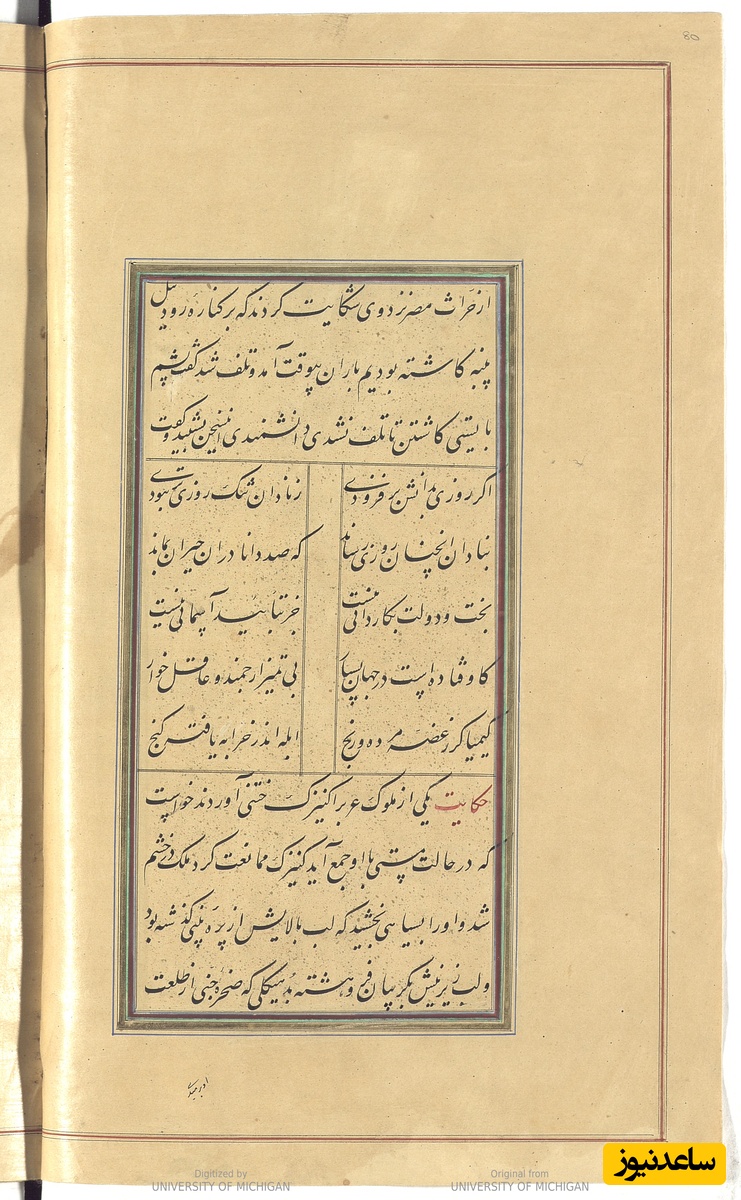 80
از حراث مصر نزد وی شکایت کردند که بر کناره رود نیل
پنبه کاشته بودیم باران بیوقت آمد و تلف شد گفت پشم
بایستی کاشتن تا تلف نشدی دانشمندی این سخن بشنید و گفت
اگر روزی بدانش بر فزودی ز نادان تنگ روزی تر نبودی
بنادان آنچنان روزی رساند که صد دانا در ان حیران بماند
بخت و دولت بکاردانی نیست جز بتایید آسمانی نیست
کاوفتاده است در جهان بسیار بی تمیز ارجمند و عاقل خوار
کیمیاگر ز غصه مرده و رنج ابله اندر خرابه یافته گنج
حکایت یکی از ملوک عرب را کنیزک ختنی آوردند خواست
که در حالت مستی با او جمع آید کنیزک ممانعت کرد ملک در خشم
شد و او را بسیاهی بخشید که لب بالایش از پره بینی گذشته بود
و لب زیرینش بگریبان فرو هشته هیکلی که صخره جنی از طلعت
Digitized by
UNIVERSITY OF MICHIGAN
Original from
UNIVERSITY OF MICHIGAN
ساعدنیوز